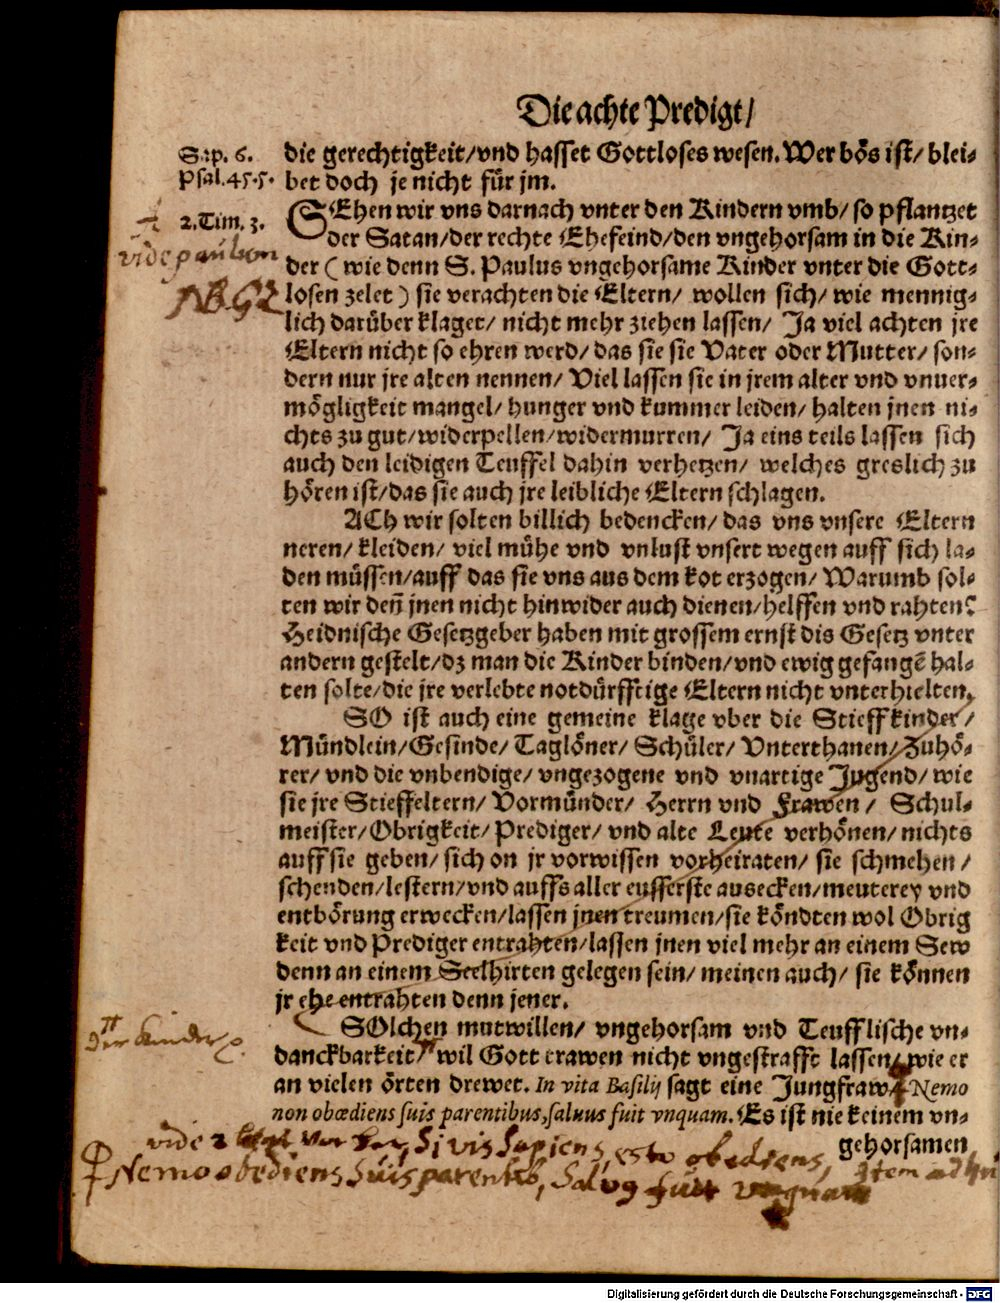 Die achte Predigt/
Sap. 6.
Psal. 45. 5.
die gerechtigkeit/vnd hasset Gottloses wesen. Wer bös ist/ blei-
bet doch je nicht für jm.
2. Tim. 3.
SEhen wir vns darnach vnter den Kindern vmb/ so pflantzet
der Satan/der rechte Ehefeind/den vngehorsam in die Kin-
der (wie denn S. Paulus vngehorsame Kinder vnter die Gott-
losen zelet) sie verachten die Eltern/ wollen sich/ wie mennig-
lich darüber klaget/ nicht mehr ziehen lassen/ Ja viel achten jre
Eltern nicht so ehren werd/ das sie sie Vater oder Mutter/ son-
dern nur jre alten nennen/ Viel lassen sie in jrem alter vnd vnuer-
mögligkeit mangel/ hunger vnd kummer leiden/ halten jnen ni-
chts zu gut/widerpellen/widermurren/ Ja eins teils lassen sich
auch den leidigen Teuffel dahin verhetzen/ welches greslich zu
hören ist/das sie auch jre leibliche Eltern schlagen.
ACh wir solten billich bedencken/ das vns vnsere Eltern
neren/ kleiden/ viel mühe vnd vnlust vnsert wegen auff sich la-
den müssen/auff das sie vns aus dem kot erzogen/ Warumb sol-
ten wir deñ jnen nicht hinwider auch dienen/helffen vnd rahten?
Heidnische Gesetzgeber haben mit grossem ernst dis Gesetz vnter
andern gestelt/dz man die Kinder binden/vnd ewig gefangẽ hal-
ten solte/die jre verlebte notdürfftige Eltern nicht vnterhielten.
SO ist auch eine gemeine klage vber die Stieffkinder/
Mündlein/Gesinde/ Taglöner/ Schüler/ Vnterthanen/Zuhö-
rer/ vnd die vnbendige/ vngezogene vnd vnartige Jugend/ wie
sie jre Stieffeltern/ Vormünder/ Herrn vnd Frawen/ Schul-
meister/Obrigkeit/ Prediger/ vnd alte Leute verhönen/ nichts
auff sie geben/ sich on jr vorwissen vorheiraten/ sie schmehen/
schenden/lestern/vnd auffs aller eusserste ausecken/meuterey vnd
entbörung erwecken/lassen jnen treumen/sie köndten wol Obrig
keit vnd Prediger entrahten/lassen jnen viel mehr an einem Sew
denn an einem Seelhirten gelegen sein/ meinen auch/ sie können
jr ehe entrahten denn jener.
der kinder
SOlchen mutwillen/ vngehorsam vnd Teufflische vn-
danckbarkeit wil Gott trawen nicht vngestrafft lassen/ wie er
an vielen örten drewet. In vita Basilij sagt eine Jungfraw/ Nemo
non obœdiens suis parentibus, saluus fuit vnquam. Es ist nie keinem vn-
gehorsamen
vide 2 si vis sapiens, esto obediens,
Nemo obediens suis parentib, salvus fuit vnquam